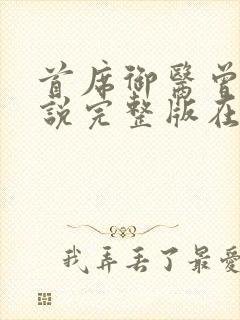 首席御醫曾
說完整版在
我弄丟了最愛